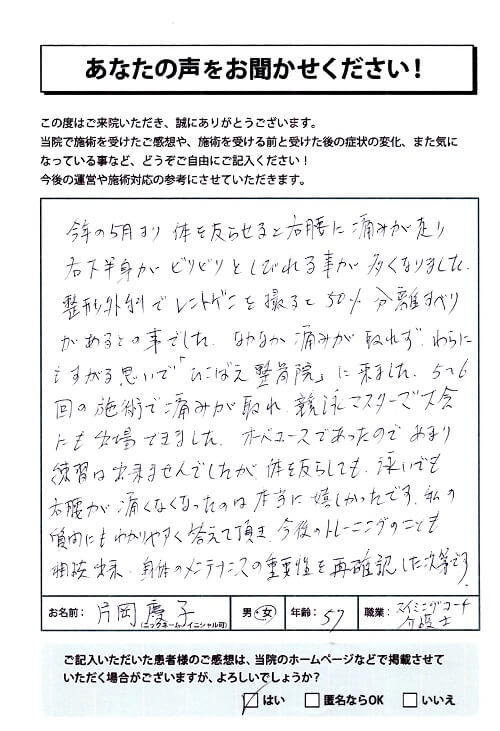 あなたの声をお聞かせください！
この度はご来院いただき、誠にありがとうございます。
当院で施術を受けたご感想や、施術を受ける前と受けた後の症状の変化、また気に
なっている事など、どうぞご自由にご記入ください！
今後の運営や施術対応の参考にさせていただきます。
今年の5月より 体を反らせると右腰に痛みが走り
右下半身がビリビリとしびれる事が多くなりました。
整形外科でレントゲンを撮ると50% 分離すべり
があるとの事でした。なかなか痛みが取れず、わらに
もすがる思いで「ひこばえ整骨院」に来ました。5〜6
回の施術で痛みが取れ、競泳マスターズ大会
にも出場できました。 であったのであまり
練習は出来ませんでしたが、体を反らしても、泳いでも
右腰が痛くなくなったのは本当に嬉しかったです。私の
質問にもわかりやすく答えて頂き、今後のトレーニングのことも
相談出来、身体のメンテナンスの重要性を再確認した次第です。
お名前： 片岡慶子 (ニックネーム・イニシャル可) 男・女 年齢： 57 職業： スイミングコーチ
介護士
ご記入いただいた患者様のご感想は、当院のホームページなどで掲載させて
いただく場合がございますが、よろしいでしょうか？
はい 匿名ならOK いいえ